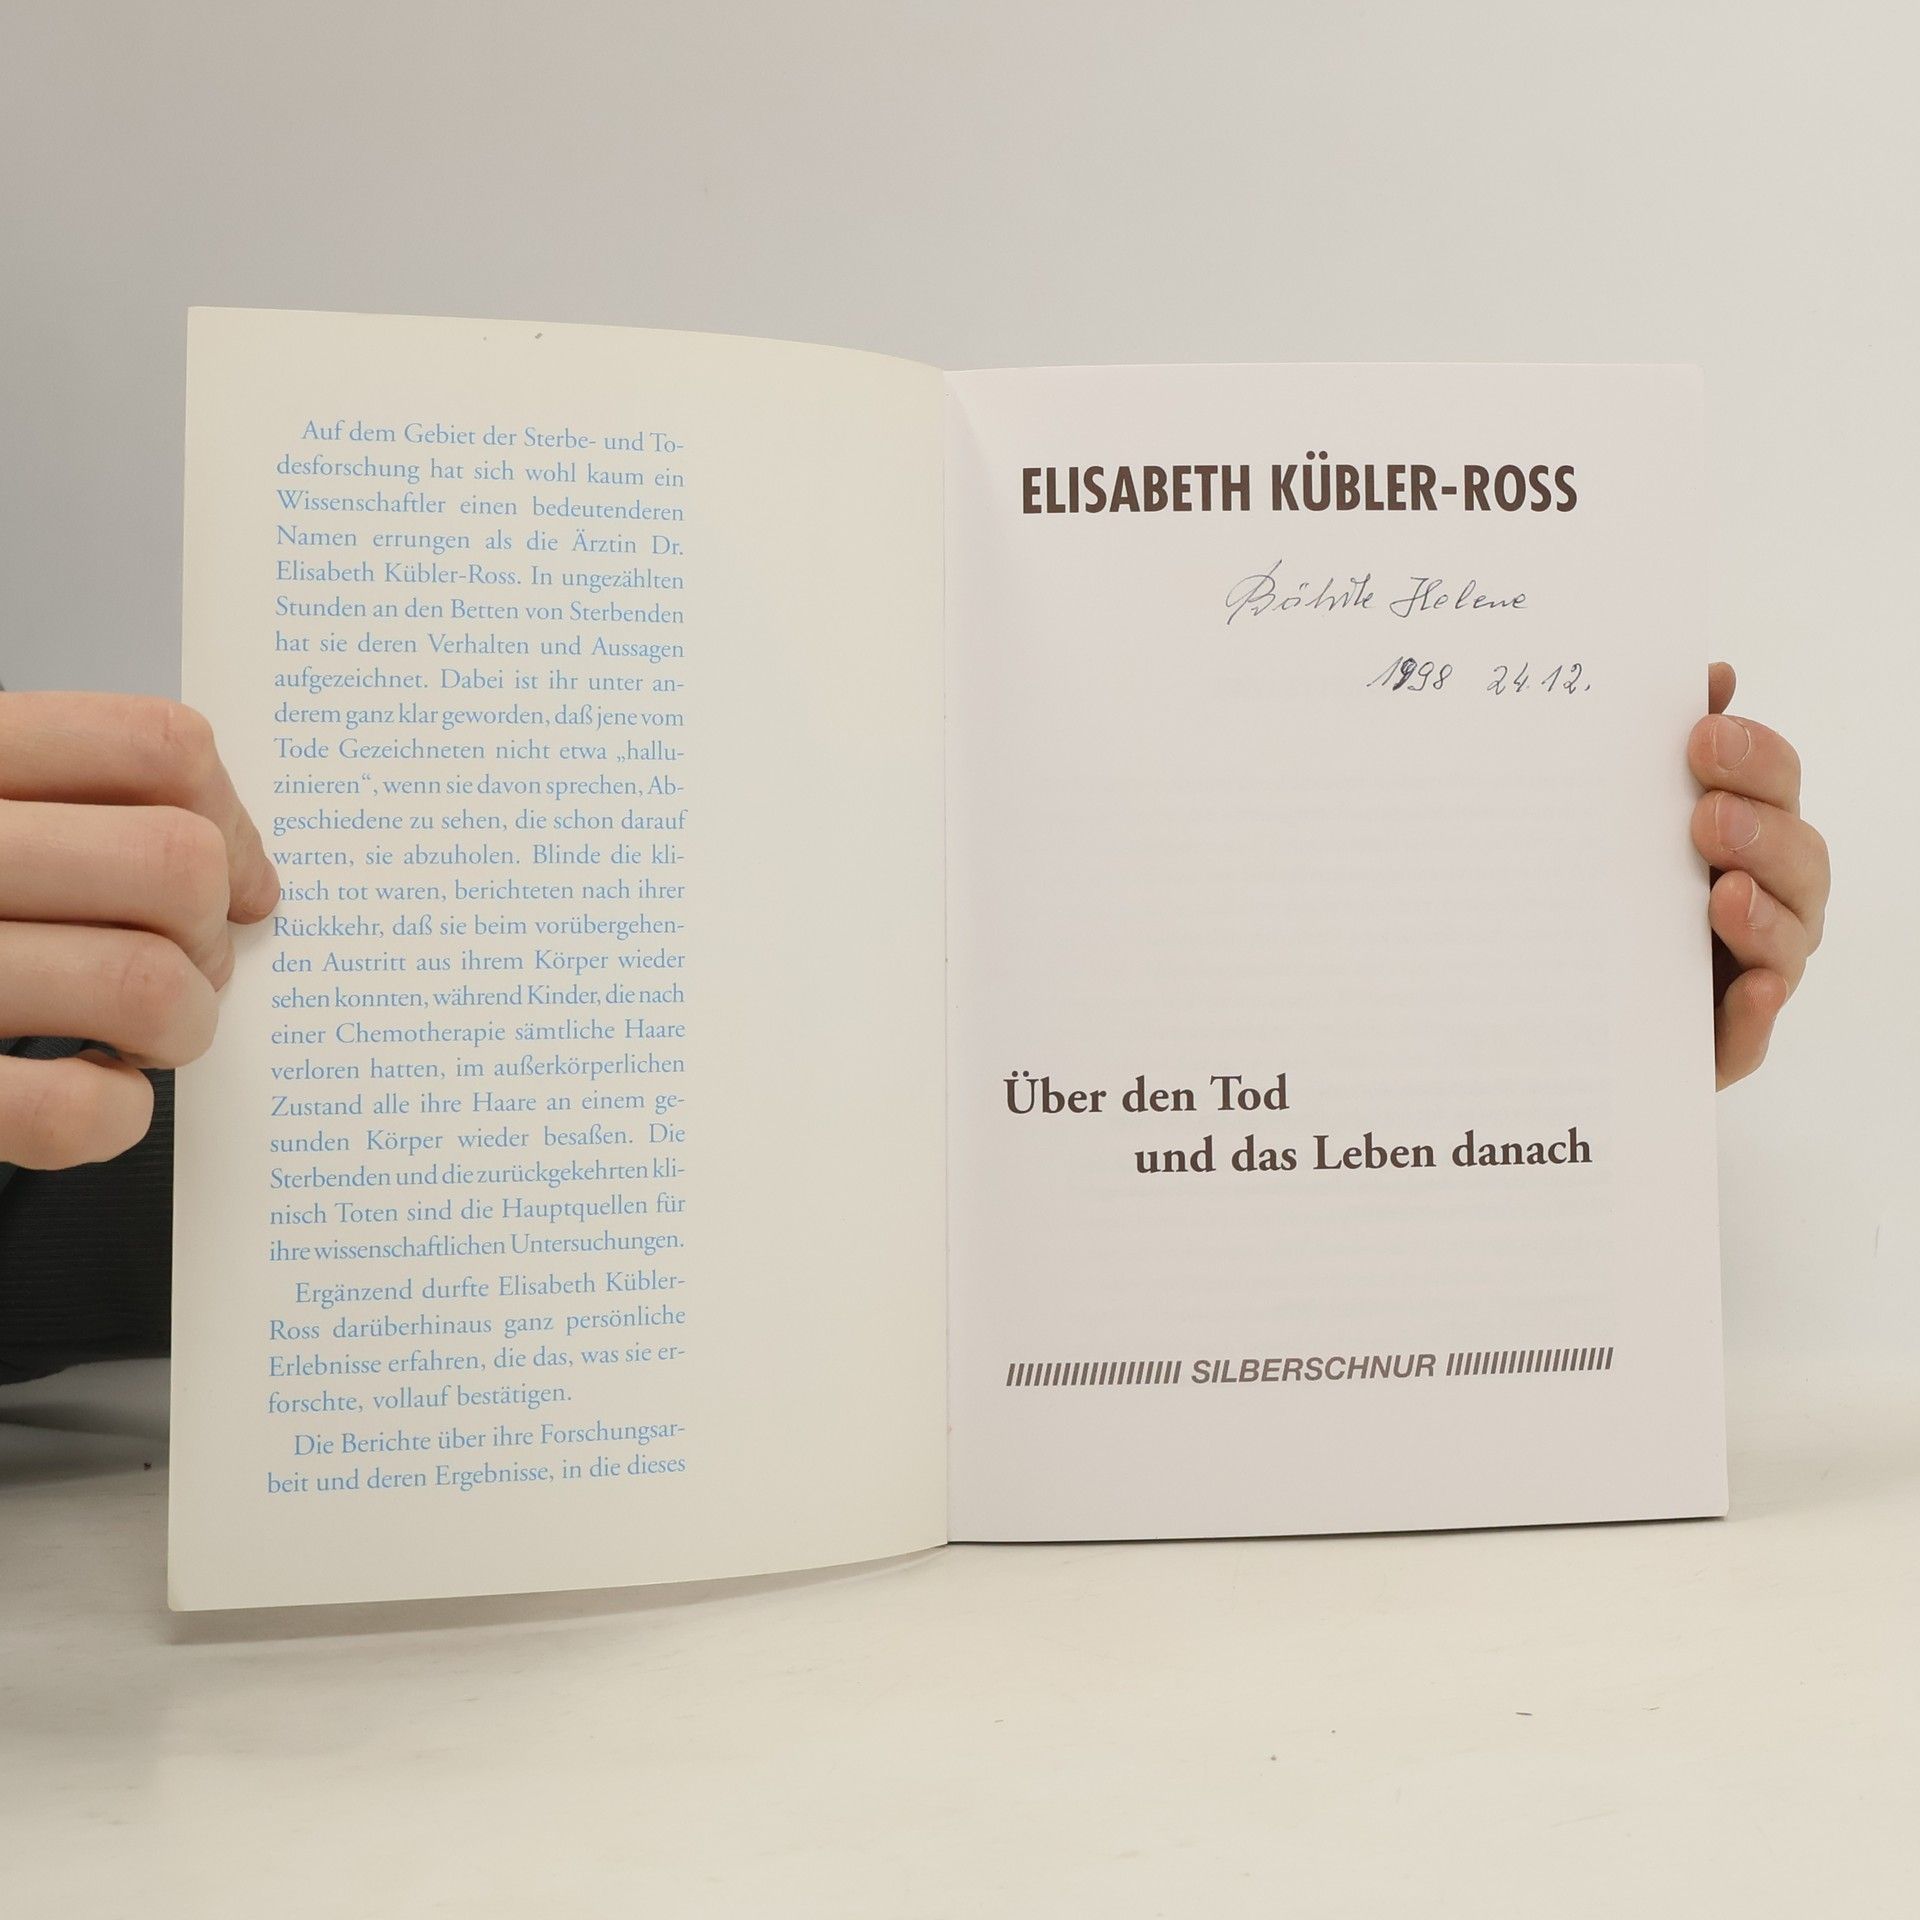 Auf dem Gebiet der Sterbe- und To-
desforschung hat sich wohl kaum ein
Wissenschaftler einen bedeutenderen
Namen errungen als die Ärztin Dr.
Elisabeth Kübler-Ross. In ungezählten
Stunden an den Betten von Sterbenden
hat sie deren Verhalten und Aussagen
aufgezeichnet. Dabei ist ihr unter an-
derem ganz klar geworden, daß jene vom
Tode Gezeichneten nicht etwa „hallu-
zinieren“, wenn sie davon sprechen, Ab-
geschiedene zu sehen, die schon darauf
warten, sie abzuholen. Blinde die kli-
nisch tot waren, berichteten nach ihrer
Rückkehr, daß sie beim vorübergehen-
den Austritt aus ihrem Körper wieder
sehen konnten, während Kinder, die nach
einer Chemotherapie sämtliche Haare
verloren hatten, im außerkörperlichen
Zustand alle ihre Haare an einem ge-
sunden Körper wieder besaßen. Die
Sterbenden und die zurückgekehrten kli-
nisch Toten sind die Hauptquellen für
ihre wissenschaftlichen Untersuchungen.
Ergänzend durfte Elisabeth Kübler-
Ross darüberhinaus ganz persönliche
Erlebnisse erfahren, die das, was sie er-
forschte, vollauf bestätigen.
Die Berichte über ihre Forschungsar-
beit und deren Ergebnisse, in die dieses
ELISABETH KÜBLER-ROSS
Helene
1998 24.12.
Über den Tod
und das Leben danach
SILBERSCHNUR